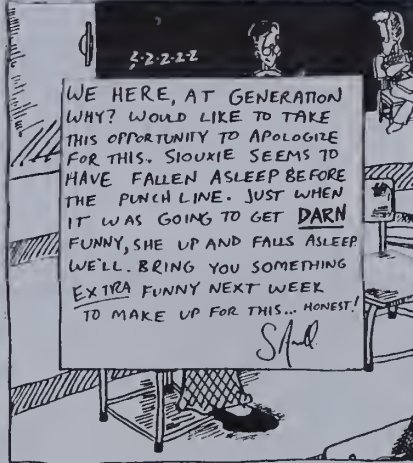 Z-Z-Z-Z-Z
WE HERE, AT GENERATION
WHY? WOULD LIKE TO TAKE
THIS OPPORTUNITY TO APOLOGIZE
FOR THIS. SIOUXIE SEEMS TO
HAVE FALLEN ASLEEP BEFORE
THE PUNCH LINE. JUST WHEN
IT WAS GOING TO GET DARN
FUNNY, SHE UP AND FALLS ASLEEP
WE'LL. BRING YOU SOMETHING
EXTRA FUNNY NEXT WEEK
TO MAKE UP FOR THIS... HONEST!